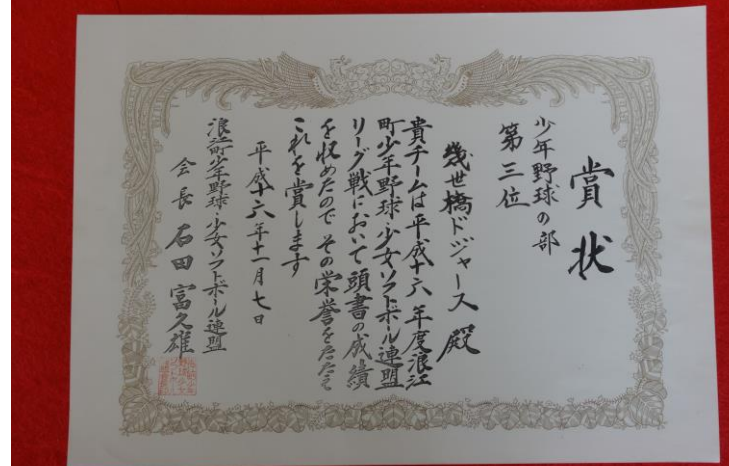 賞状
少年野球の部
第三位
幾世橋ドジャース殿
貴チームは平成十六年度浪江
町少年野球・少女ソフトボール連盟
リーグ戦において頭書の成績
を収めたのでその栄誉をたたえ
これを賞します
平成十六年十一月七日
浪江町少年野球・少女ソフトボール連盟
会長 石田富久雄